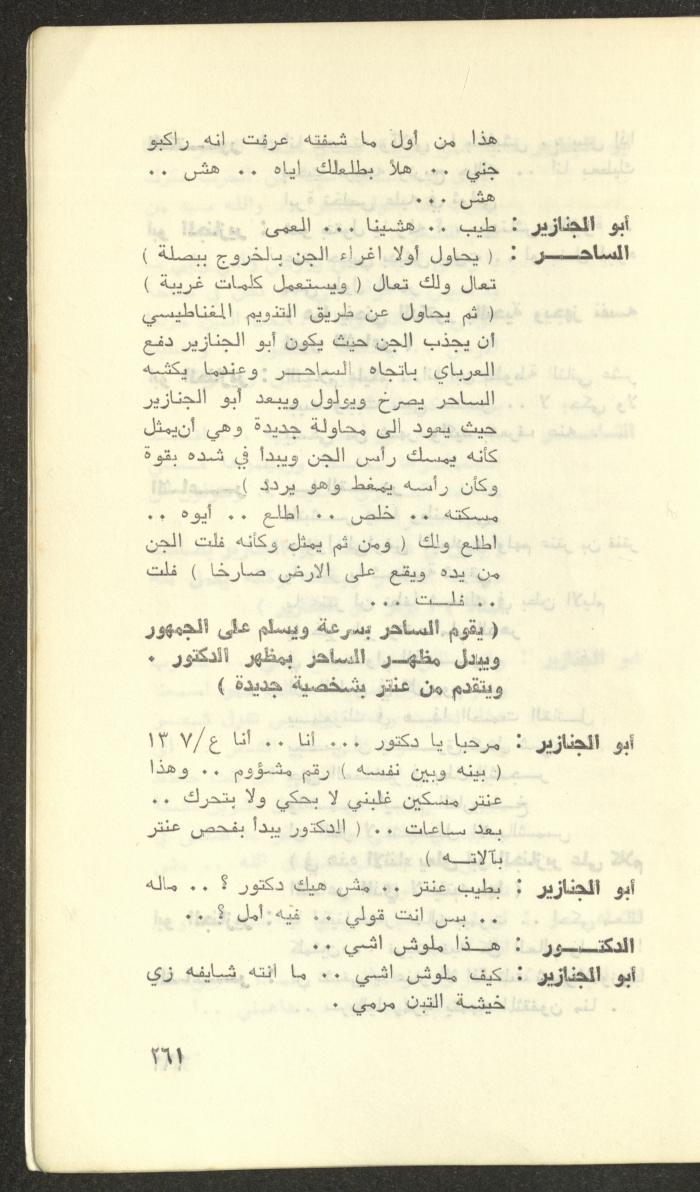 هذا من أول ما شفته عرفت انه راكبو
جني .. هلأ بطلعلك اياه .. هش ..
هش ...
أبو الجنازير : طيب .. هشينا ... العمى
الساحـــر : ( يحاول أولا اغراء الجن بالخروج ببصلة )
تعال ولك تعال ( ويستعمل كلمات غريبة )
( ثم يحاول عن طريق التنويم المغناطيسي
أن يجذب الجن حيث يكون أبو الجنازير دفع
العرباي باتجاه الساحـر وعندما يكشه
الساحر يصرخ ويولول ويبعد أبو الجنازير
حيث يعود الى محاولة جديدة وهي أن يمثل
كأنه يمسك رأس الجن ويبدأ في شده بقوة
وكأن رأسه يمغط وهو يردد )
مسكته .. خلص .. اطلع .. أيوه ..
اطلع ولك ( ومن ثم يمثل وكأنه فلت الجن
من يده ويقع على الارض صارخا ) فلت
.. فلـت ...
( يقوم الساحر بسرعة ويسلم على الجمهور
ويبدل مظهـر الساحر بمظهر الدكتور .
ويتقدم من عنتر بشخصية جديدة )
أبو الجنازير : مرحبا يا دكتور ... أنا .. أنا ع/٧ ١٣
( بينه وبين نفسه ) رقم مشؤوم .. وهذا
عنتر مسكين غلبني لا بحكي ولا بتحرك ..
بعد ساعات .. ( الدكتور يبدأ بفحص عنتر
بآلاتـه )
أبو الجنازير : بطيب عنتر .. مش هيك دكتور ؟ .. ماله
.. بس انت قولي .. فيه أمل ؟ ..
الدكتـــور : هـذا ملوش اشي ..
أبو الجنازير : كيف ملوش اشي .. ما انته شايفه زي
خيشة التبن مرمي .
٢٦١